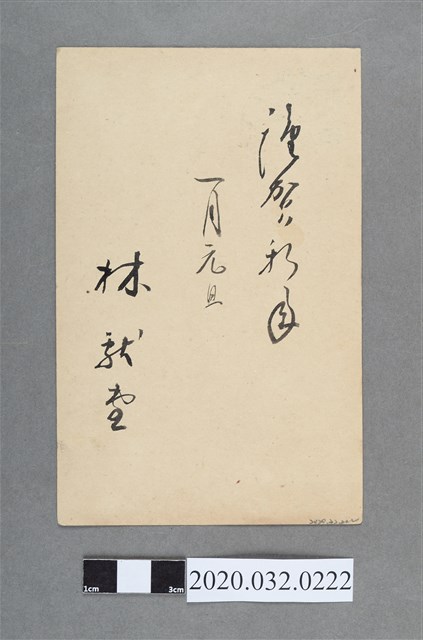 謹賀新年
一月元旦
林献堂
1cm 3cm
2020.032.0222